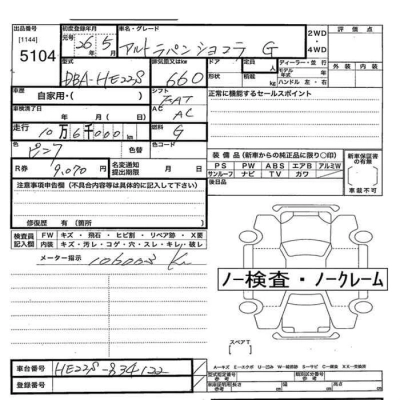 出品番号 初度登録年月 車名・グレード 2WD 評価点
[1144] 元号 26年5月 アルトラパンショコラ G ・4WD
5104
型式 排気量又はkW ドア 定員 ディーラー・並行 外装 内装
DBA-HE22S 660 人 モデル年式 年
形状 積載 ハンドル 左・右
車歴 自家用・( ) シフト kg
FAT 正常に機能するセールスポイント
車検満了日 年 月 日 AC AC
走行 10万6千000km 燃料 G
色 ピンク 色替 色コード
装備品(新車からの純正品に限り○印) 新車保証書の有無
R券 9,070円 名変通知提出期限 月 日 PS PW ABS エアB アルミW
サンルーフ ナビ TV カワ 有・無
後日品 車載不可
注意事項申告欄(不具合内容等は具体的に記入して下さい)
修復歴 有 (箇所 )
検査員記入欄 FW キズ・飛石・ヒビ割・リペア跡・X要
内装 キズ・汚レ・コゲ・穴・スレ・キレ・破レ
メーター指示 106003 Km
ノー検査・ノークレーム
スペアT
A=キズ E=エクボ U=凹み W=補修跡 S=サビ C=腐食 XX=交換済
車台番号 HE22S-834122
登録番号